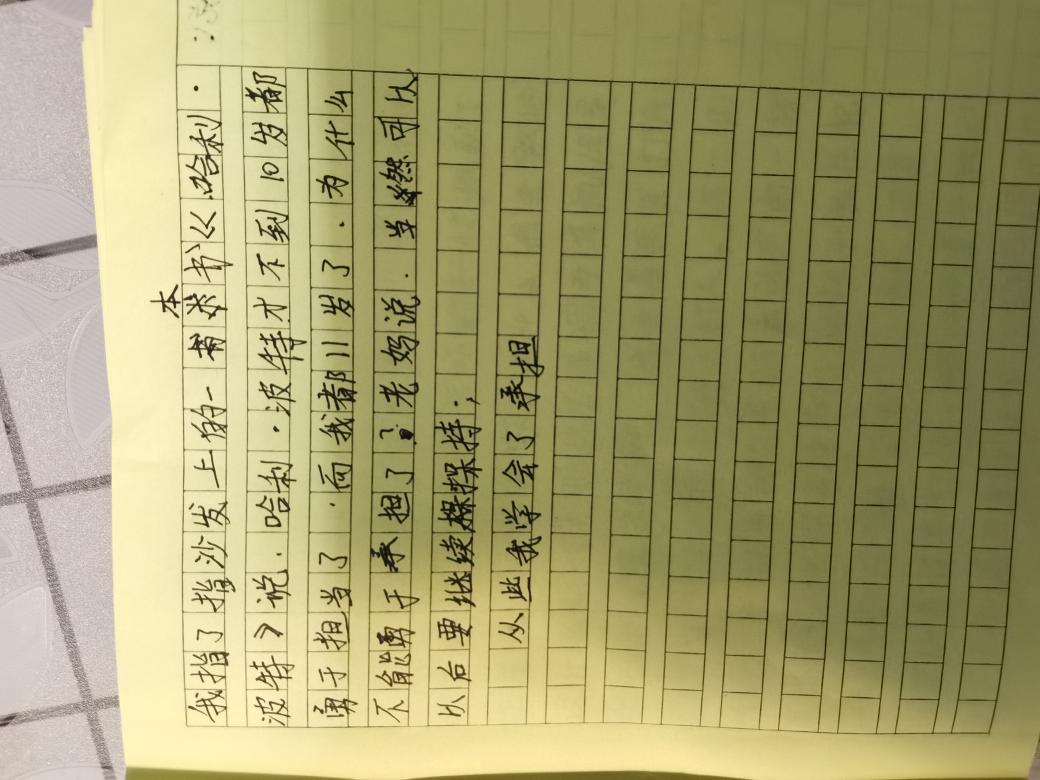 本
我指了指沙发上的一书《哈利·
波特》说.哈利·波特才不到10岁都
勇于担当了.而我都11岁了.为什么
不能勇于承担了?老妈说.当然可以
以后要继续保持;
从此我学会了承担